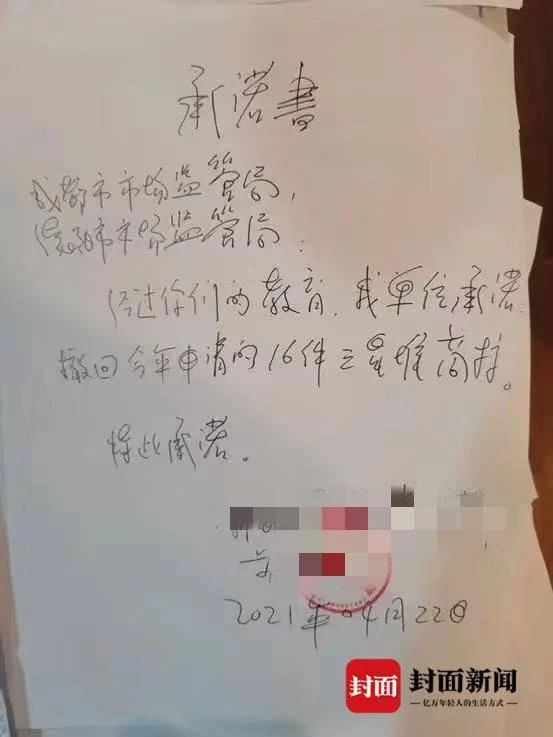 承诺書
成都市市场监管局，
市市场监管局：
经过你们的教育，我单位承诺：
撤回今年申请的16件三星堆商标。
特此承诺。
2021年04月22日
封面 封面新闻
亿万年轻人的生活方式